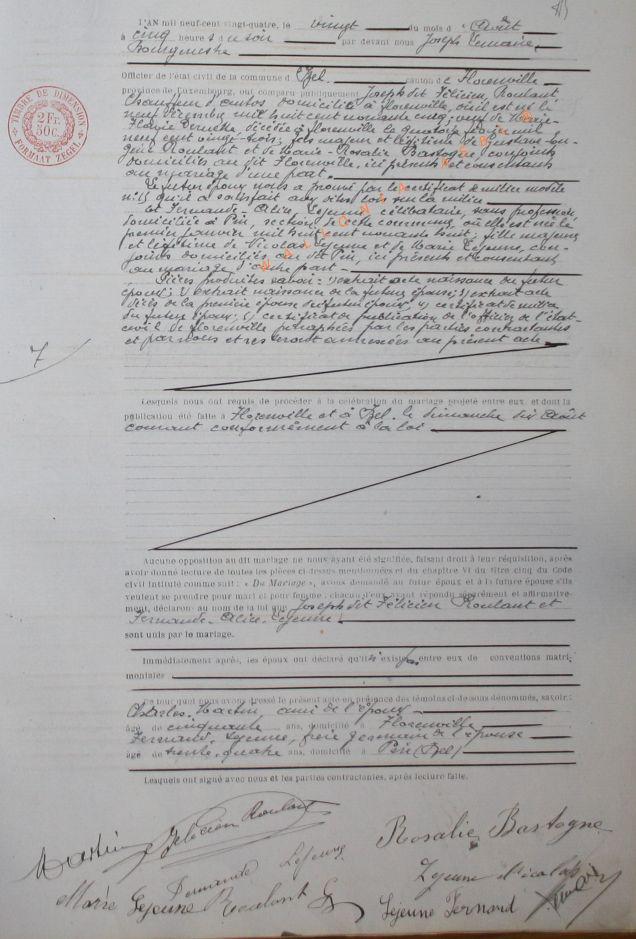 L'AN mil neuf-cent vingt-quatre, le vingt du mois d'Août
à cinq heures du soir par devant nous Joseph Lemaire,
Bourgmestre
Officier de l'état civil de la commune d'Izel canton de Florenville
province de Luxembourg, ont comparu publiquement Joseph dit Félicien, Roulant
Chauffeur d'autos domicilié à Florenville, où il est né le
neuf mil huit cent nonante cinq, veuf de Marie
décédée à Florenville le quatorze mil
neuf cent vingt-trois, fils majeur et légitime de Gustave
Roulant et de Marie-Rosalie Bastogne conjoints
domiciliés au dit Florenville, ici présents et consentants
au mariage d'une part.
Le futur époux nous a prouvé par le certificat de milice modèle
qu'il a satisfait aux lois sur la milice
Et Fernande-Alice, Lejeune célibataire, sans profession
domiciliée à Pin section de cette commune, où elle est née le
premier janvier mil huit cent nonante huit, fille majeure
et légitime de Nicolas Lejeune et de Marie Lejeune, con-
joints domiciliés au dit Pin, ici présents et consentants
au mariage d'autre part.
Pièces produites savoir: 1) extrait acte naissance du futur
époux; 2) extrait naissance de la future épouse; 3) extrait acte
décès de la première épouse du futur époux; 4) certificat de milice
du futur époux; 5) certificat de publication de l'officier de l'état-
civil de Florenville paraphées par les parties contractantes
et par nous et resteront annexées au présent acte
7
TIMBRE DE DIMENSION
2 Fr.
50c.
FORMAAT ZEGEL
Lesquels nous ont requis de procéder à la célébration du mariage projeté entre eux, et dont la
publication été faite à Florenville et à Izel, le dimanche dix Août
courant conformément à la loi
Aucune opposition au dit mariage ne nous ayant été signifiée, faisant droit à leur réquisition, après
avoir donné lecture de toutes les pièces ci-dessus mentionnées et du chapitre VI du titre cinq du Code
civil intitulé comme suit: « Du Mariage », avons demandé au futur époux et à la future épouse s'ils
veulent se prendre pour mari et pour femme: chacun d'eux ayant répondu séparément et affirmative-
ment, déclarons au nom de la loi que Joseph dit Félicien Roulant et
Fernande-Alice-Lejeune
sont unis par le mariage.
Immédiatement après, les époux ont déclaré qu'il n'existe pas entre eux de conventions matri-
moniales
De tout quoi nous avons dressé le présent acte en présence des témoins ci-dessous dénommés, savoir:
Charles Martin, ami de l'époux
âgé de cinquante ans, domicilié à Florenville
Fernand, Lejeune, frère germain de l'épouse
âgé de trente-quatre ans, domicilié à Pin (Izel)
Lesquels ont signé avec nous et les parties contractantes, après lecture faite.
Martin Felicien Roulant Rosalie Bastogne
Fernande Lejeune Lejeune Nicolas
Marie Lejeune Roulant G Lejeune Fernand